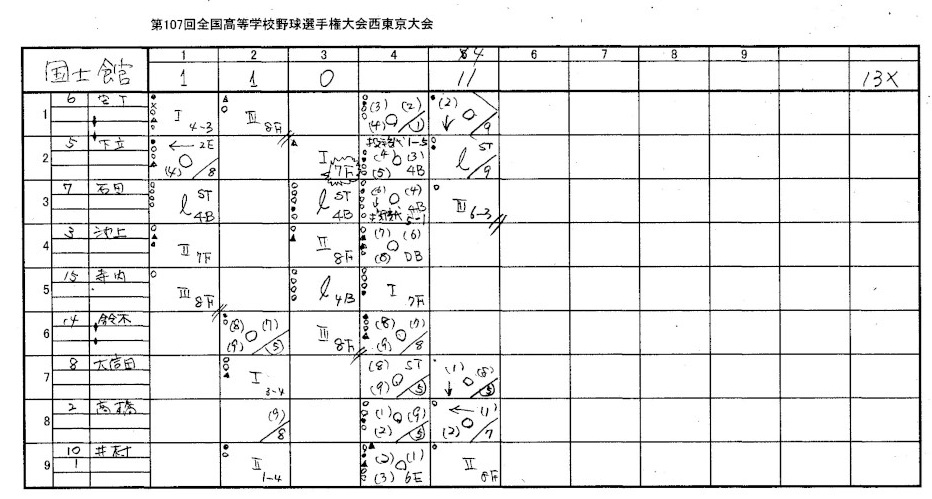 第107回全国高等学校野球選手権大会西東京大会
1 2 3 4 4 6 7 8 9
国士舘 1 1 0 11 13X
1 6 I 4-3 III 8F (3) (2) (4) 1 (2) 9
2 5 2E (4) 8 I 7F 投読代 1-5 (4) (3) (5) 4B l ST 9
3 7 石田 l ST 4B l ST 4B (6) (4) 4B 5-1 III 6-3
4 3 池上 II 7F II 8F (7) (6) DB
5 15 寺内 III 8F l 4B I 7F
6 14 鈴木 (8) (7) (9) 5 III 8F (8) (7) (9) 8
7 8 I 3-4 (8) ST (9) 5 (1) 5
8 2 高橋 (9) 8 (1) (9) (2) 5 (1) (2) 7
9 10 井村 1 II 1-4 (2) (1) (3) 6E II 8F